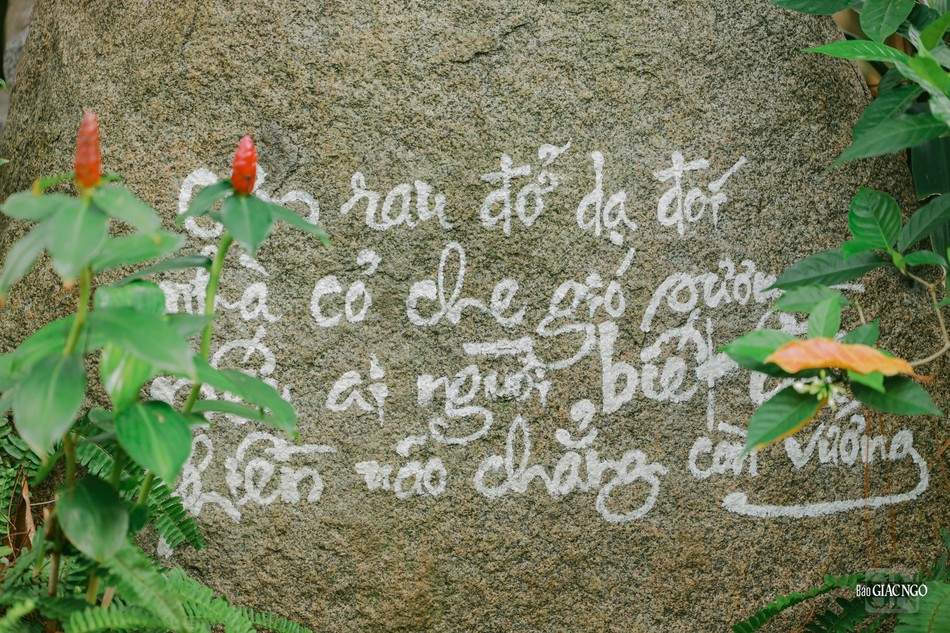 Cơm rau đỡ dạ đói
nhà cỏ che gió sương
Nếu ai người biết
Phiền não chẳng còn vướng
Báo GIÁC NGỘ